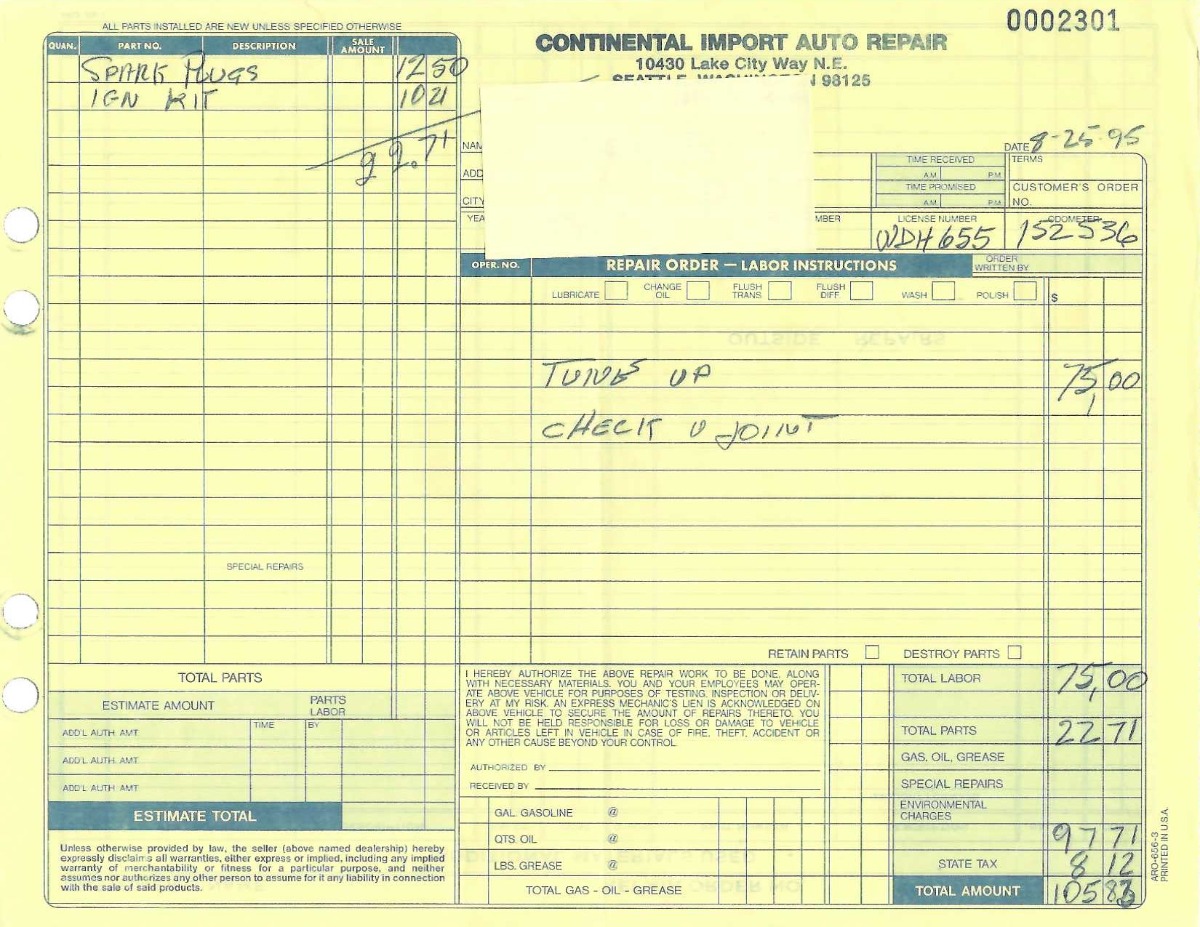 ALL PARTS INSTALLED ARE NEW UNLESS SPECIFIED OTHERWISE
0002301
QUAN. PART NO. DESCRIPTION SALE AMOUNT
SPARK PLUGS 12 50
IGN KIT 10 21
22.71
CONTINENTAL IMPORT AUTO REPAIR
10430 Lake City Way N.E.
98125
DATE 8-25-95
TIME RECEIVED A.M. P.M.
TERMS
TIME PROMISED A.M. P.M.
CUSTOMER'S ORDER NO.
LICENSE NUMBER WDH 655
ODOMETER 152536
OPER. NO. REPAIR ORDER — LABOR INSTRUCTIONS ORDER WRITTEN BY
LUBRICATE CHANGE OIL FLUSH TRANS FLUSH DIFF. WASH POLISH $
OUTSIDE REPAIRS
TUNE UP 75,00
CHECK U JOINT
SPECIAL REPAIRS
RETAIN PARTS DESTROY PARTS
TOTAL PARTS
ESTIMATE AMOUNT PARTS LABOR
ADD'L AUTH. AMT. TIME BY
ADD'L AUTH. AMT.
ADD'L AUTH. AMT.
ESTIMATE TOTAL
Unless otherwise provided by law, the seller (above named dealership) hereby
expressly disclaims all warranties, either express or implied, including any implied
warranty of merchantability or fitness for a particular purpose, and neither
assumes nor authorizes any other person to assume for it any liability in connection
with the sale of said products.
I HEREBY AUTHORIZE THE ABOVE REPAIR WORK TO BE DONE, ALONG
WITH NECESSARY MATERIALS. YOU AND YOUR EMPLOYEES MAY OPER-
ATE ABOVE VEHICLE FOR PURPOSES OF TESTING, INSPECTION OR DELIV-
ERY AT MY RISK. AN EXPRESS MECHANIC'S LIEN IS ACKNOWLEDGED ON
ABOVE VEHICLE TO SECURE THE AMOUNT OF REPAIRS THERETO. YOU
WILL NOT BE HELD RESPONSIBLE FOR LOSS OR DAMAGE TO VEHICLE
OR ARTICLES LEFT IN VEHICLE IN CASE OF FIRE, THEFT, ACCIDENT OR
ANY OTHER CAUSE BEYOND YOUR CONTROL.
AUTHORIZED BY
RECEIVED BY
GAL. GASOLINE @
QTS. OIL @
LBS. GREASE @
TOTAL GAS - OIL - GREASE
TOTAL LABOR 75,00
TOTAL PARTS 22 71
GAS, OIL, GREASE
SPECIAL REPAIRS
ENVIRONMENTAL CHARGES
97 71
STATE TAX 8 12
TOTAL AMOUNT 105 83
ARO-656-3
PRINTED IN U.S.A.